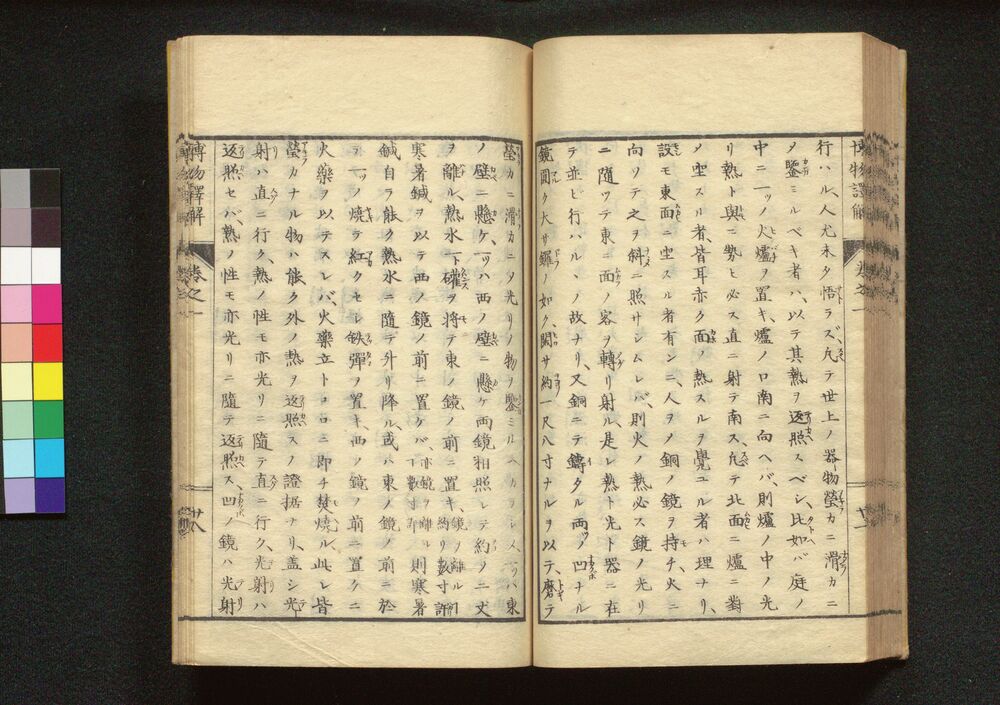 博物譯解 卷之一
行ハル、人尤未タ悟ラズ、凡テ世上ノ器物瑩カニ滑カニ
タ鑒ミルベキ者ハ、以テ其熱ヲ返照スベシ、比如バ庭ノ
中ニ一ツノ火爐ヲ置キ、爐ノ口南ニ向ヘバ、則爐ノ中ノ光
リ熱ト與ニ勢ヒ必ス直ニ射テ南ス、凢テ北面ニ爐ニ對
メ坐スル者、皆耳亦ク面熱スルヲ覺ユル者ハ理ナリ、
設モ東面ニ坐スル者有ンニ、人ヲメ銅ノ鏡ヲ持チ、火ニ
向ソテ之ヲ斜ニ照サシムレバ、則火ノ熱必ス鏡ノ光リ
ニ隨ツテ東ニ面ノ客ヲ轉リ射ル、是レ熱ト光ト器ニ在
テ並ビ行ハルヽノ故ナリ、又銅ニテ鑄タル両ツノ凹ナル
鏡圓ク大サ鑼ノ如ク、闊サ約一尺八寸ナルヲ以テ、磨テ
瑩カニ滑カニタ光リノ物ヲ鑒ミルヘカラシメ、一ツハ東
ノ壁ニ懸ケ、一ツハ西ノ壁ニ懸ケ両鏡相照シテ約ヲニ丈
ヲ離ル、熱水一罐ヲ將テ東ノ鏡ノ前ニ置キ、鏡ヲ離ル約リ數寸許
寒暑鍼ヲ以テ西ノ鏡ノ前ニ置ケバ、亦鏡ヲ離ル數寸許 則寒暑
鍼自ラ能ク熱水ニ隨テ升リ降ル、或ハ東ノ鏡ノ前ニ於
テ一ツノ燒テ紅クセシ鉄彈ヲ置キ、西ノ鏡ノ前ニ置クニ
火藥ヲ以テスレバ、火藥立トコロニ即チ焚燒ル、此レ皆
瑩カナル物ハ能ク外ノ熱ヲ返照スノ證据ナリ、蓋シ光
射ハ直ニ行ク、熱ノ性モ亦光リニ隨テ直ニ行ク、光射ハ
返照セバ熱ノ性モ亦光リニ隨テ返照ス、凹ノ鏡ハ光射
博物譯解 卷之一